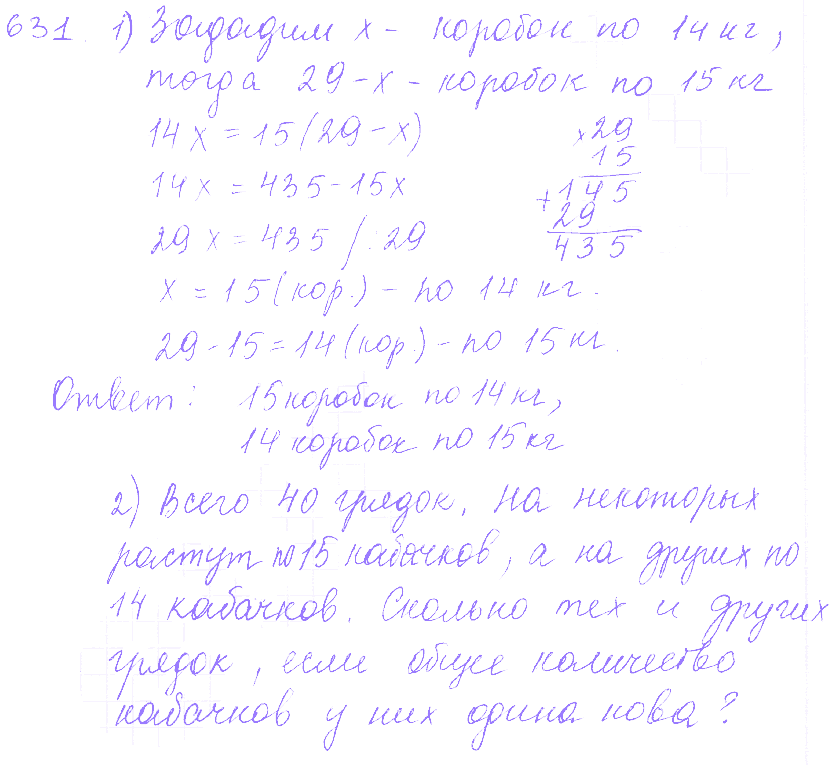 631. 1) Зададим x - коробок по 14 кг,
тогда 29-x - коробок по 15 кг
14x = 15(29-x)
14x = 435-15x
29x = 435 /:29
x = 15 (кор.) - по 14 кг.
29-15=14 (кор.) - по 15 кг.
×29
15
+145
29
435
Ответ: 15 коробок по 14 кг,
14 коробок по 15 кг
2) Всего 40 грядок. На некоторых
растут по 15 кабачков, а на других по
14 кабачков. Сколько тех и других
грядок, если общее количество
кабачков у них одина кова?